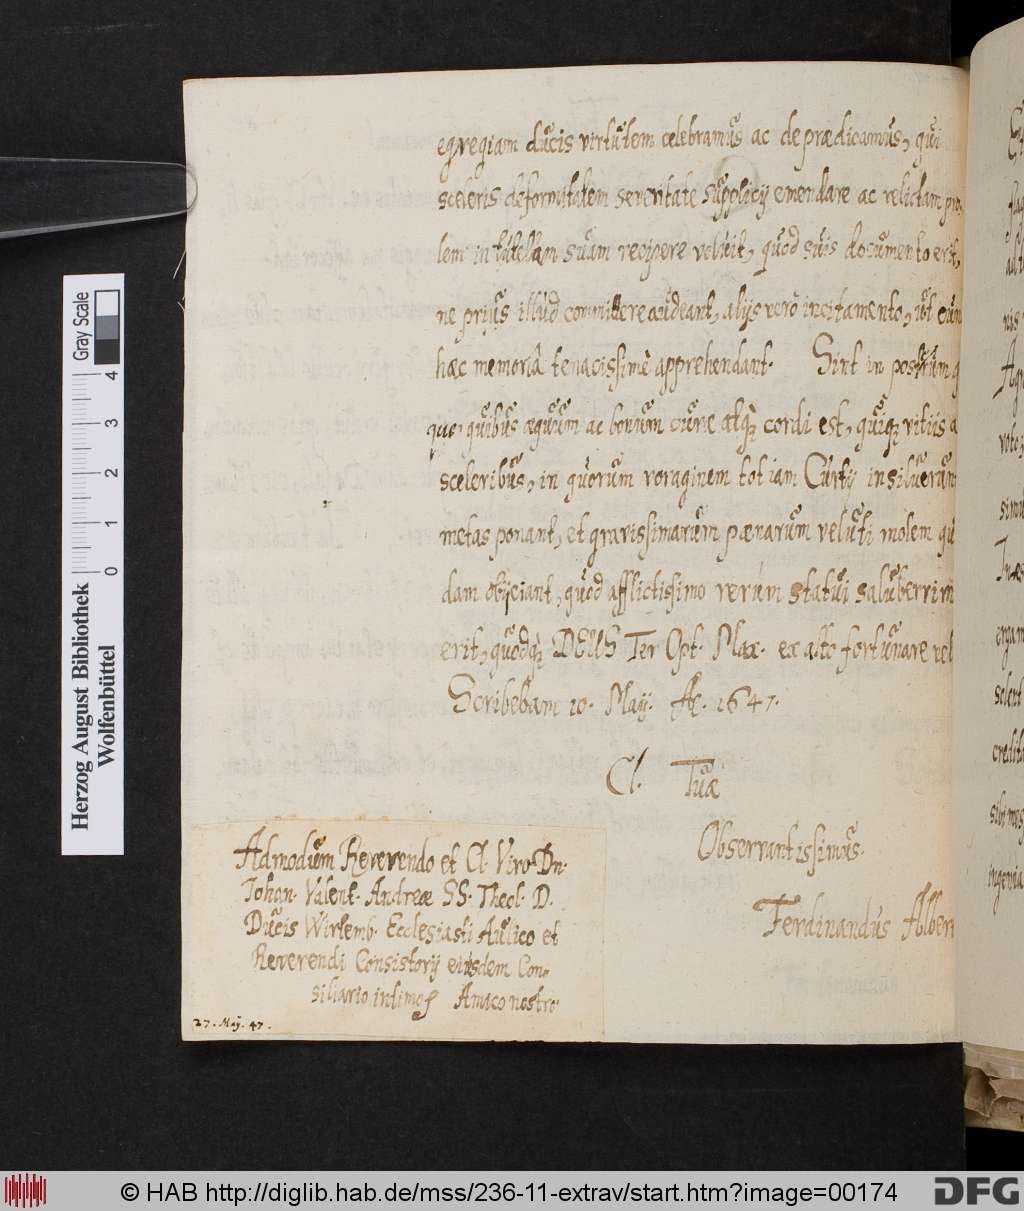 egregiam ducis virtutem celebramus ac deprædicamus, qui
sceleris deformitatem severitate supplicij emendare ac relictam pro
lem in tutelam suam recipere voluit, quod suis documento erit,
ne prius illud committere audeant, alijs verò incitamento, ubi eum
hæc memoriâ tenacissimè apprehendant. Sint in postrum
quo, quibus æquum ac bonum curæ atq, cordi est, quiq, vitiis a
sceleribus, in quorum voraginem tot iam Curtij insiluerunt
metas ponant, et gravissimarum pænarum veluti molem qu
dam obijciant, quod afflictissimo rerum statui saluberrim
erit, quodq, DEUS Ter Opt. Max. ex alto fortunare vel
Scribebam 10. Maij. Aº. 1647.
Cl. Tuæ
Observantissimus.
Ferdinandus Albert
Admodum Reverendo et Cl. Viro Dn.
Johan. Valent. Andreæ SS. Theol. D.
Ducis Wirtemb. Ecclesiasti Aulico et
Reverendi Consistorij eiusdem Con-
siliario intimo Amico nostro.
27. May. 47.
Herzog August Bibliothek
Wolfenbüttel
0 1 2 3 4
Gray Scale
© HAB http://diglib.hab.de/mss/236-11-extrav/start.htm?image=00174
DFG